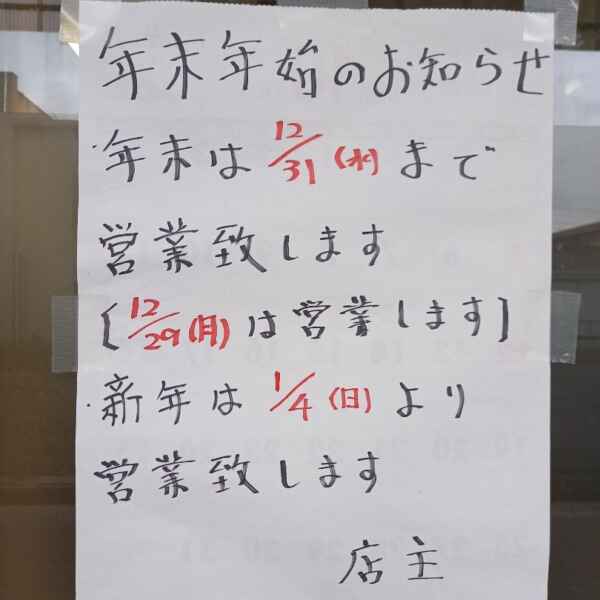 年末年始のお知らせ
・年末は12/31(水)まで
営業致します
[12/29(月)は営業します]
・新年は1/4(日)より
営業致します
店主